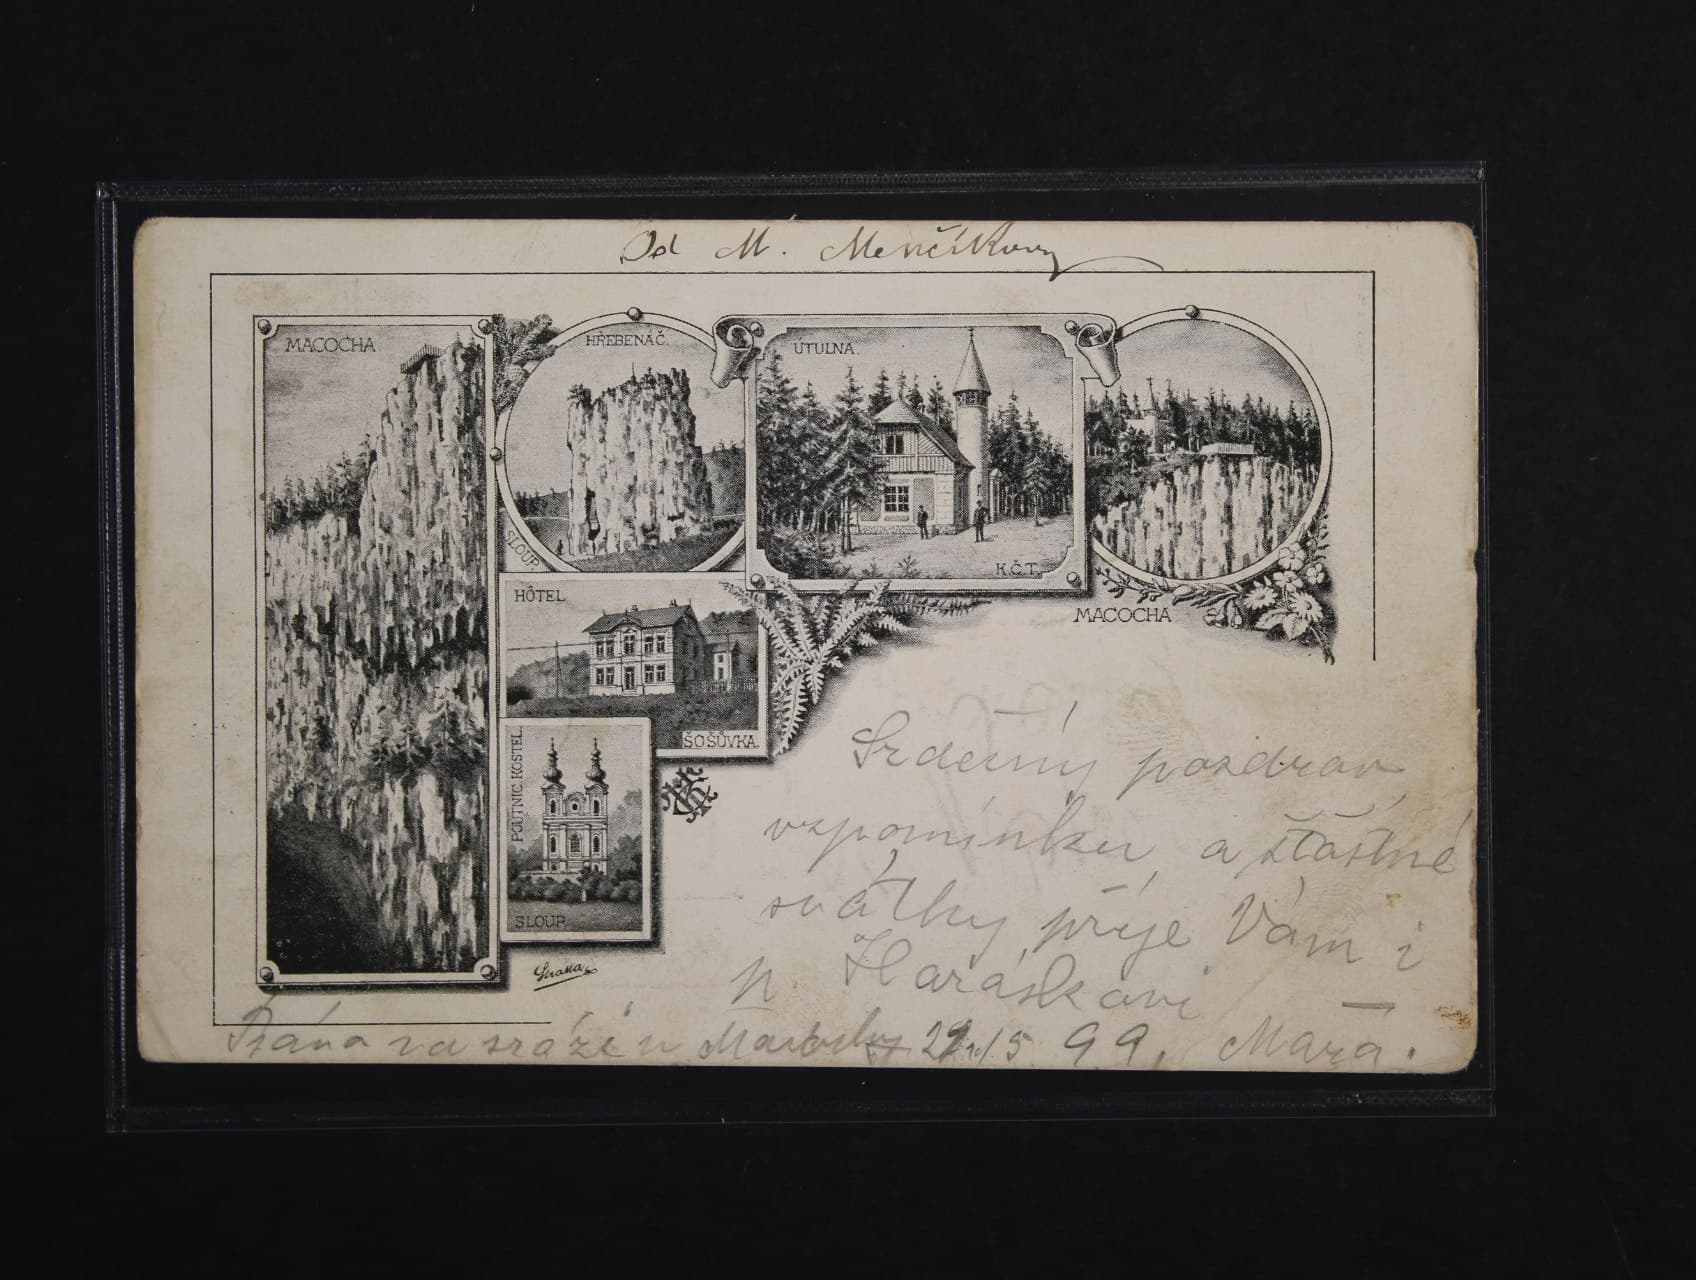 Od M. Menčíkovy
MACOCHA.
HŘEBENÁČ.
SLOUP.
ÚTULNA.
K.Č.T.
MACOCHA
HÔTEL
ŠOŠŮVKA.
POUTNIC. KOSTEL.
SLOUP.
Srdečný pozdrav
vzpomínku a šťastné
svátky přeje Vám i
p. Haráskovi
Psáno na srázi u Macochy 21/5 99. Mařa.